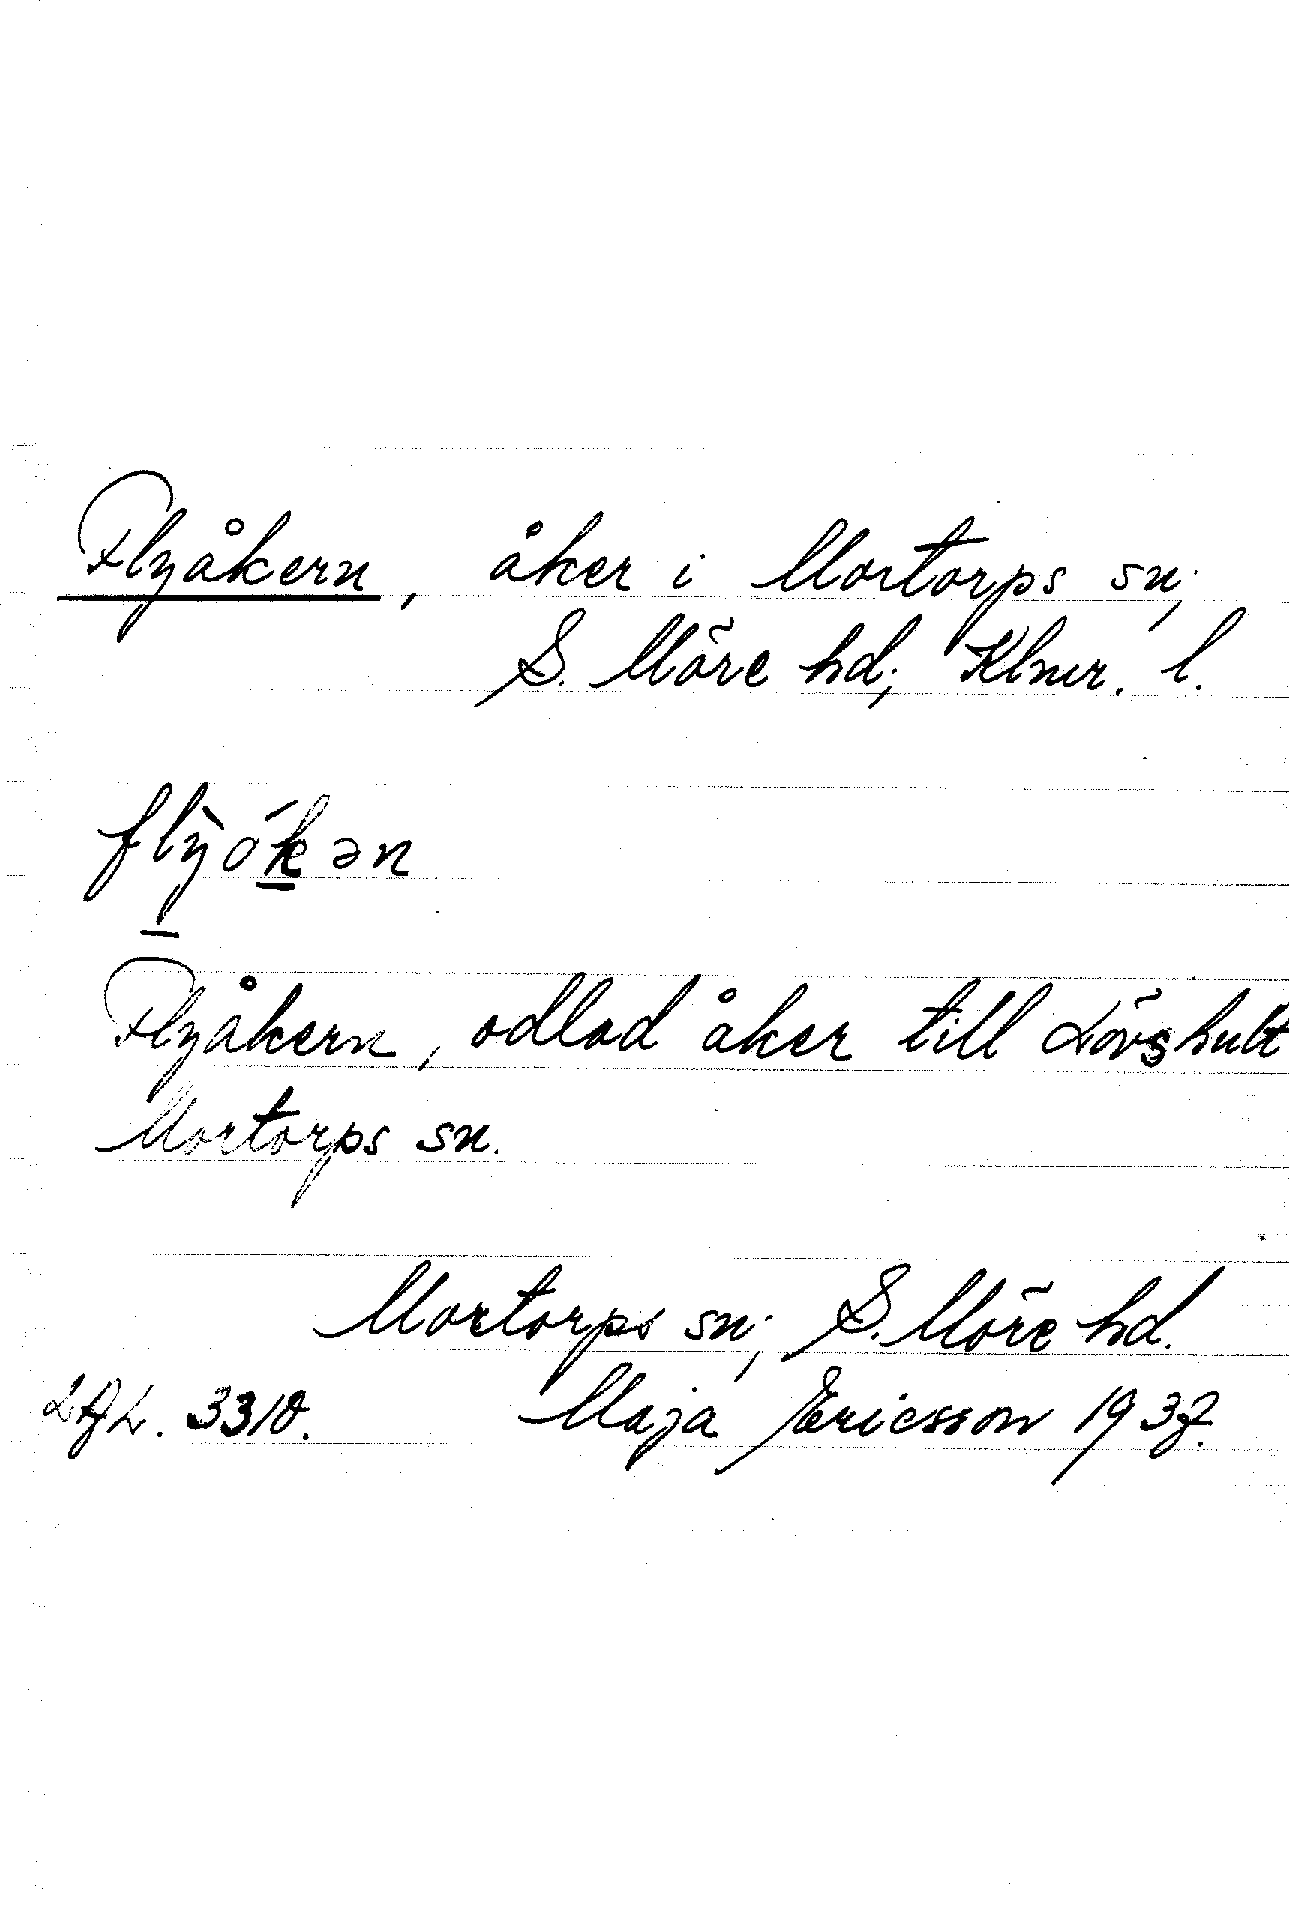 Flyåkern, åker i Mortorps sn;
S. Möre hd; Klmr. l.
flỳ̱óḵən
Flyåkern, odlad åker till Lövshult
Mortorps sn.
Mortorps sn; S. Möre hd.
LAL. 3310. Maja Ericsson 1937.